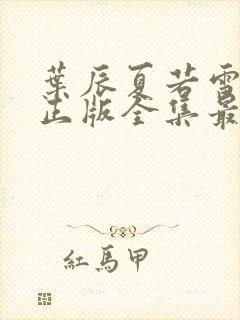 葉辰夏若雪
正版全集最
紅馬甲